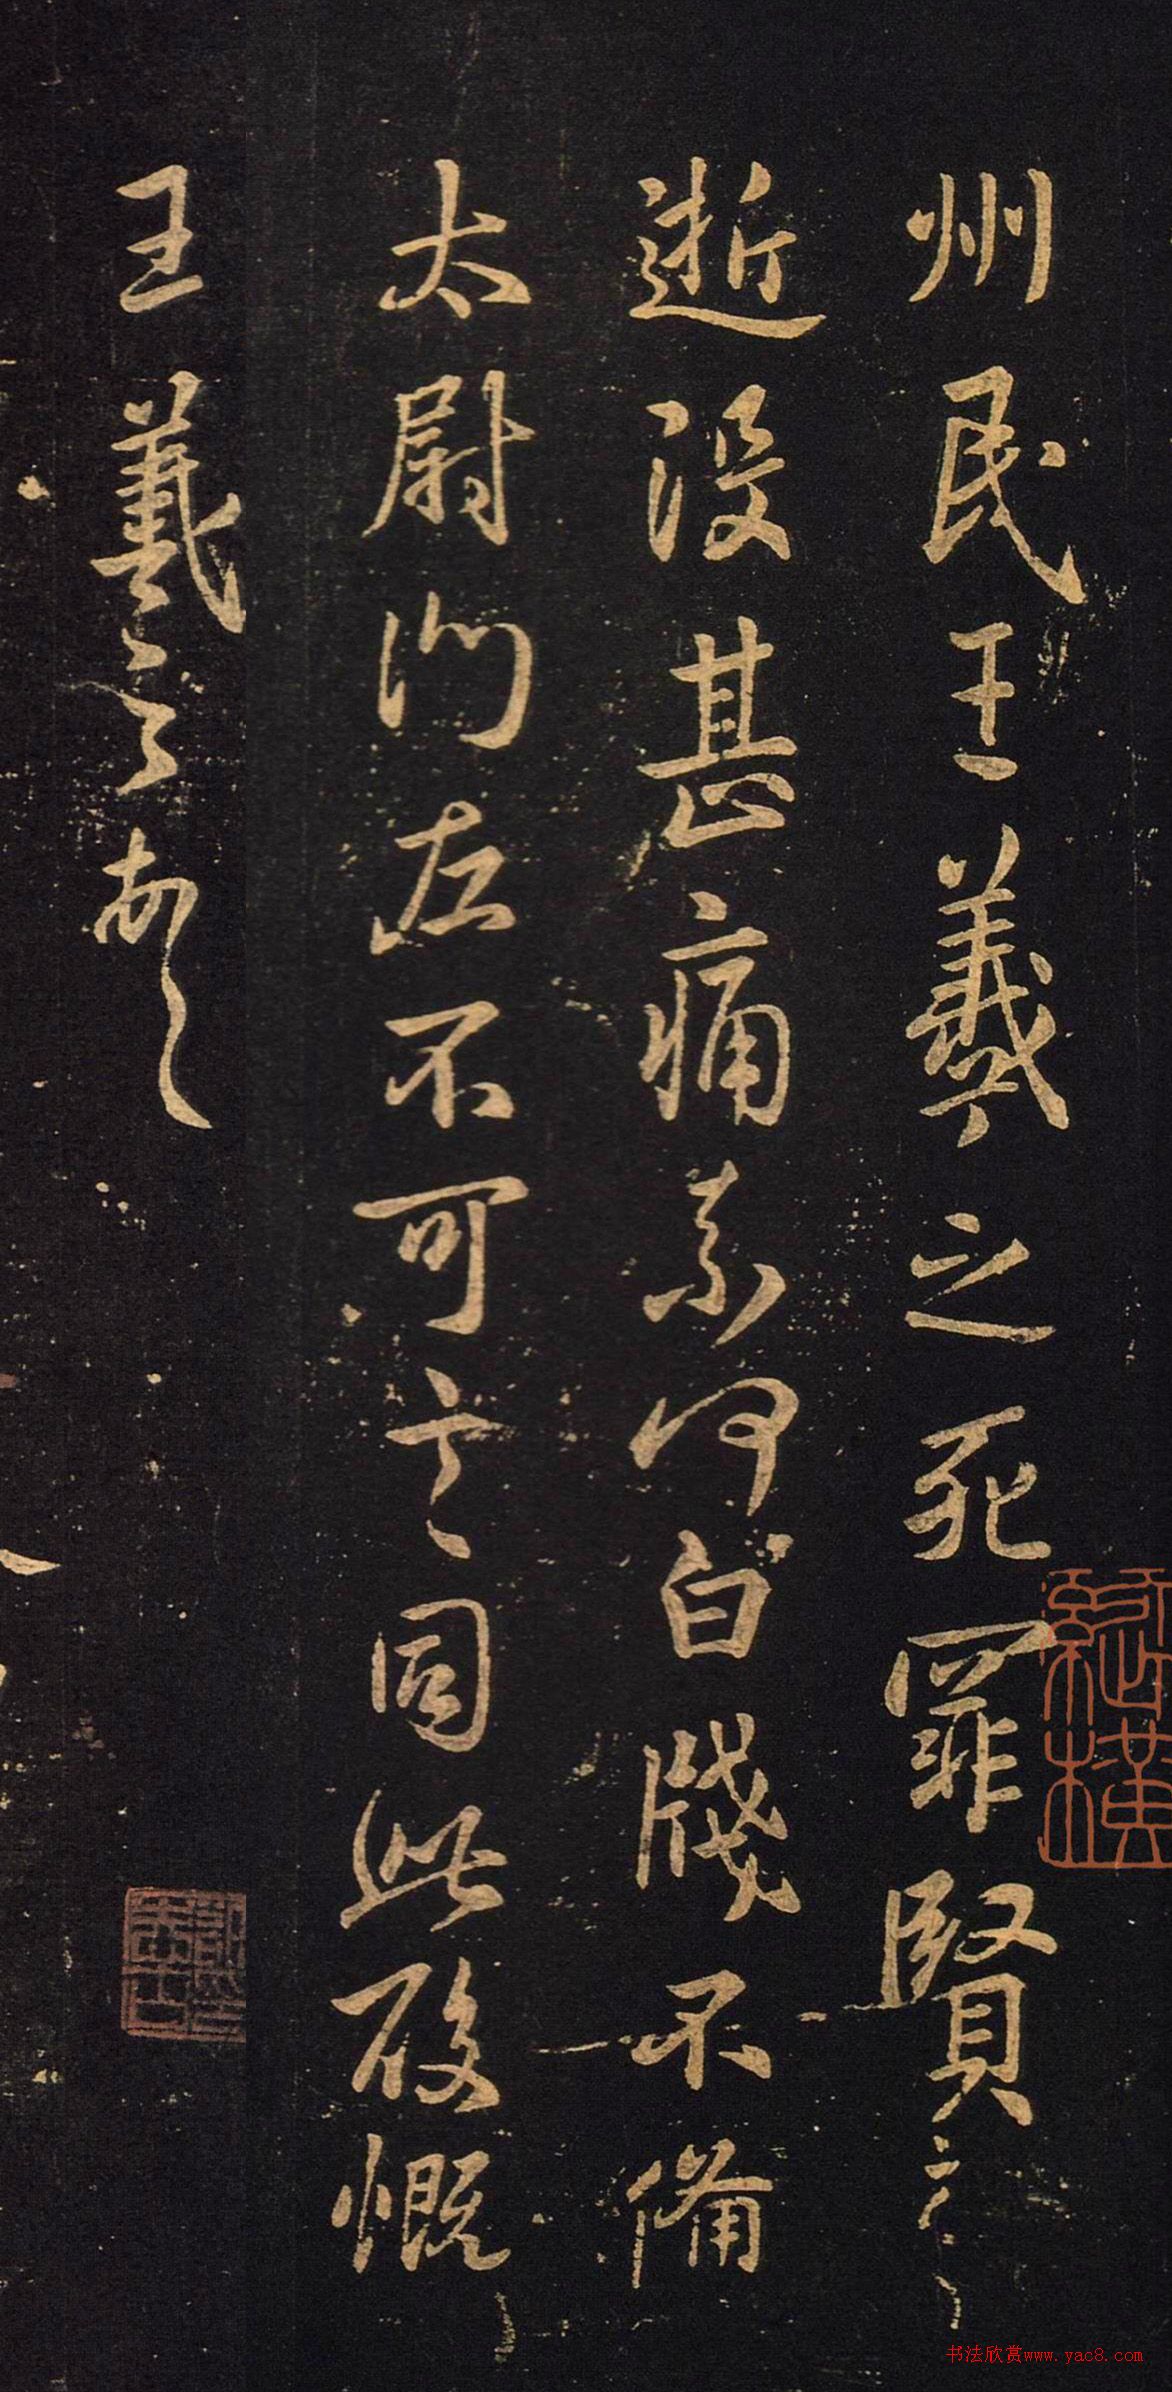 州民王羲之死罪賢
逝没甚痛奈何白牋不備
太尉門左不可言同此酸慨
王羲之
书法欣赏www.yac8.com